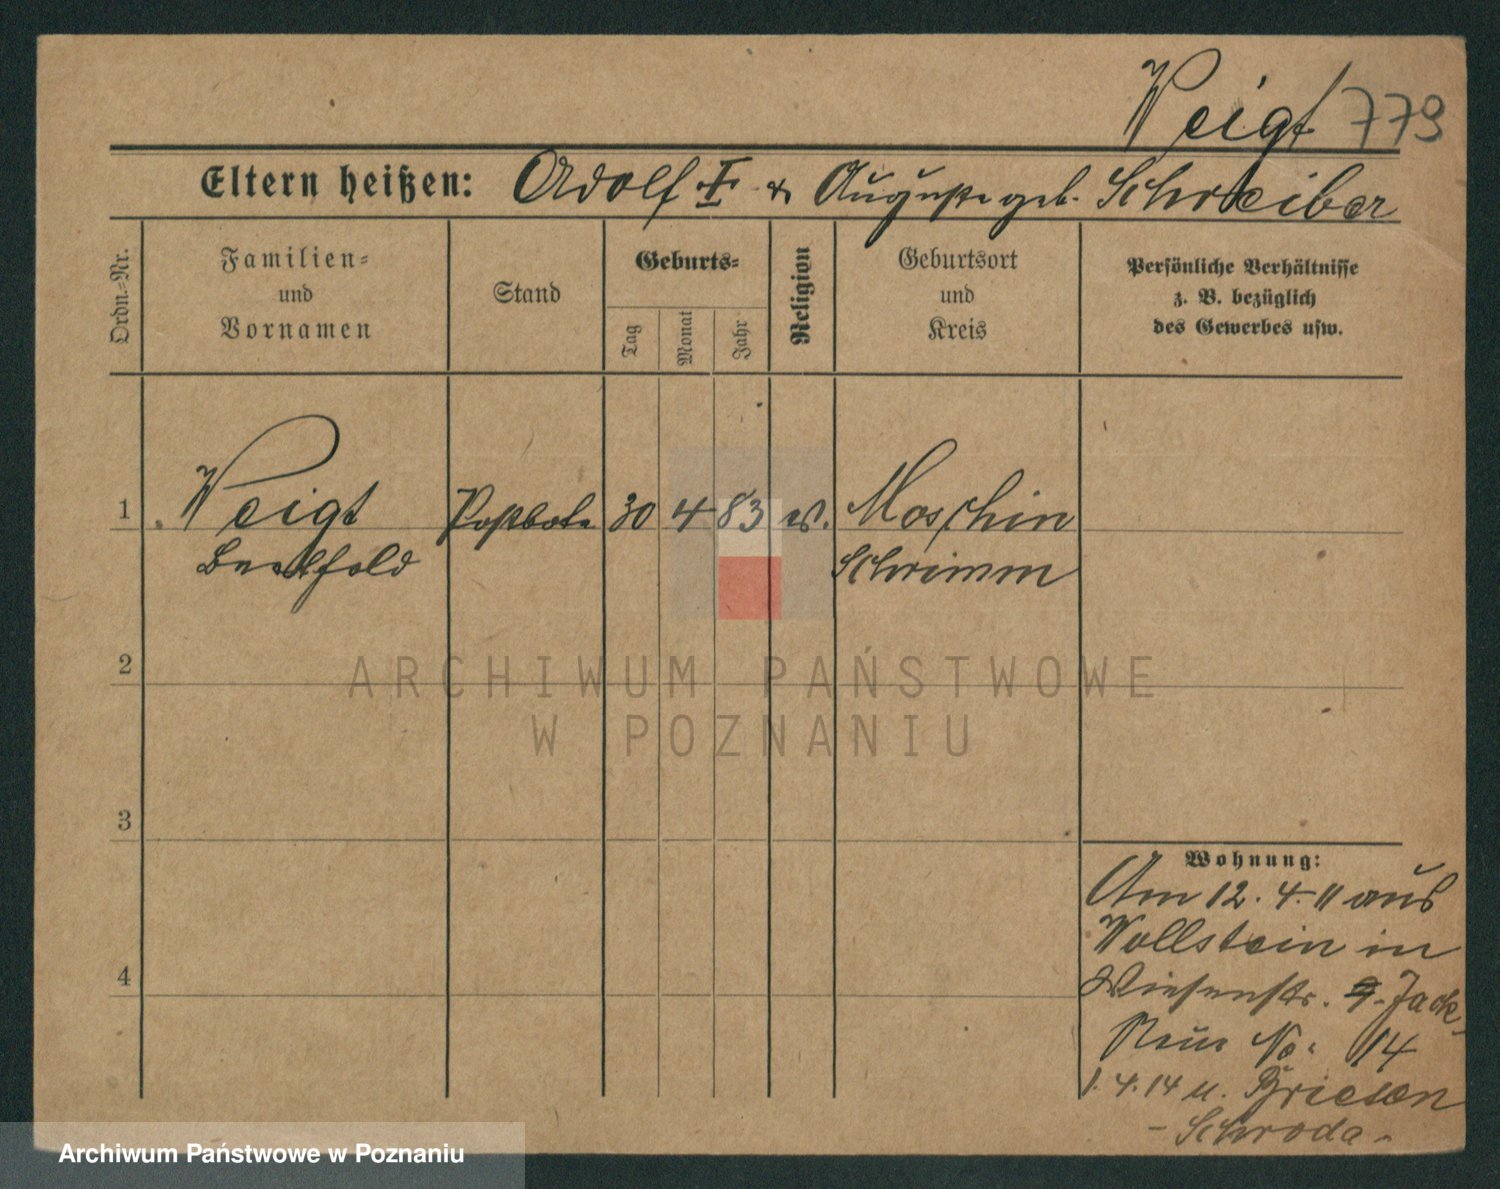 Veigt 779
Eltern heißen: Adolf I & Auguste geb. Schreiber
Ordn.-Nr.
Familien-
und
Vornamen
Stand
Geburts-
Tag
Monat
Jahr
Religion
Geburtsort
und
Kreis
Persönliche Verhältnisse
z. B. bezüglich
des Gewerbes usw.
1 Veigt Postbote 30 4 83 ev. Moschin
Schrimm
2
ARCHIWUM PAŃSTWOWE
W POZNANIU
3
4
Wohnung:
Am 12. 4. 11 aus
Wollstein in
Wiesenstr.
No. 14
1. 4. 14 n. Briesen
- Schroda -
Archiwum Państwowe w Poznaniu